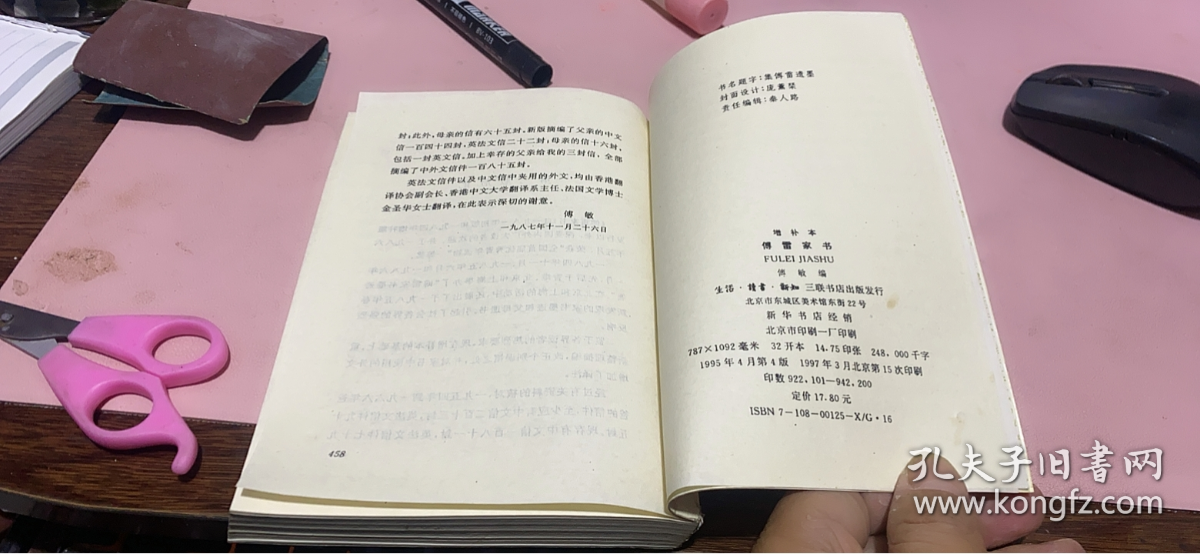 封；此外，母亲的信有六十五封。新版摘编了父亲的中文
信一百四十四封，英法文信二十二封；母亲的信十六封，
包括一封英文信。加上幸存的父亲给我的三封信，全部
摘编了中外文信件一百八十五封。
英法文信件以及中文信中夹用的外文，均由香港翻
译协会副会长、香港中文大学翻译系主任、法国文学博士
金圣华女士翻译，在此表示深切的谢意。
傅 敏
一九八七年十一月二十六日
458
书名题字：集傅雷遗墨
封面设计：庞薰琹
责任编辑：秦人路
增补本
傅雷家书
FULEI JIASHU
傅敏编
生活·读书·新知 三联书店出版发行
北京市东城区美术馆东街22号
新华书店经销
北京市印刷一厂印刷
787×1092毫米 32开本 14.75印张 248,000千字
1995年4月第4版 1997年3月北京第15次印刷
印数 922,101-942,200
定价 17.80元
ISBN 7-108-00125-X/G·16
孔夫子旧書网
www.kongfz.com